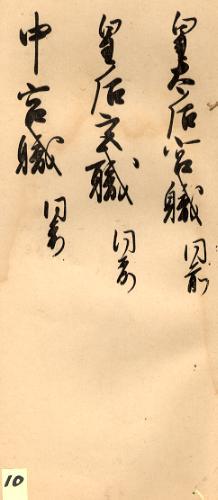 皇太后宮職 同前
皇后宮職 同前
中宮職 同前
10